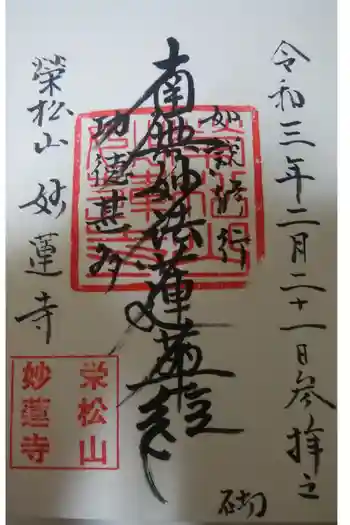 令和三年二月二十一日参拝之
如説修行
南無妙法蓮華経
功徳甚多
榮松山 妙蓮寺
栄松山
妙蓮寺